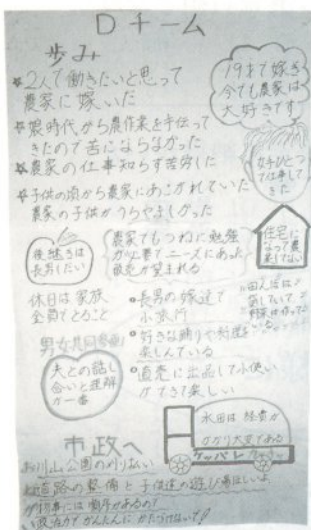 Dチーム
歩み
☆2人で働きたいと思って
農家に嫁いだ
☆娘時代から農作業を手伝って
きたので苦にならなかった
☆農家の仕事知らず苦労した
☆子供の頃から農家にあこがれていた
農家の子供がうらやましかった
19才で嫁ぎ
今でも農家は
大好きです
女手ひとつ
で仕事して
きた
後継ぎは
長男したい
農家でもつねに勉強
が必要でニーズにあった
販売が望まれる
住宅に
なって農
業してない
休日は家族
全員でとること
●長男の嫁達で
小旅行
●好きな踊りや料理を
楽しんでいる
●直売に出品して小使い
ができて楽しい
男女共同参画
夫との話し
合いと理解
が一番
水田は経費が
かかり大変である
ガッパレ
市政へ
お川山公園の刈り払い
道路の整備と子供達の遊び場ほしいよ